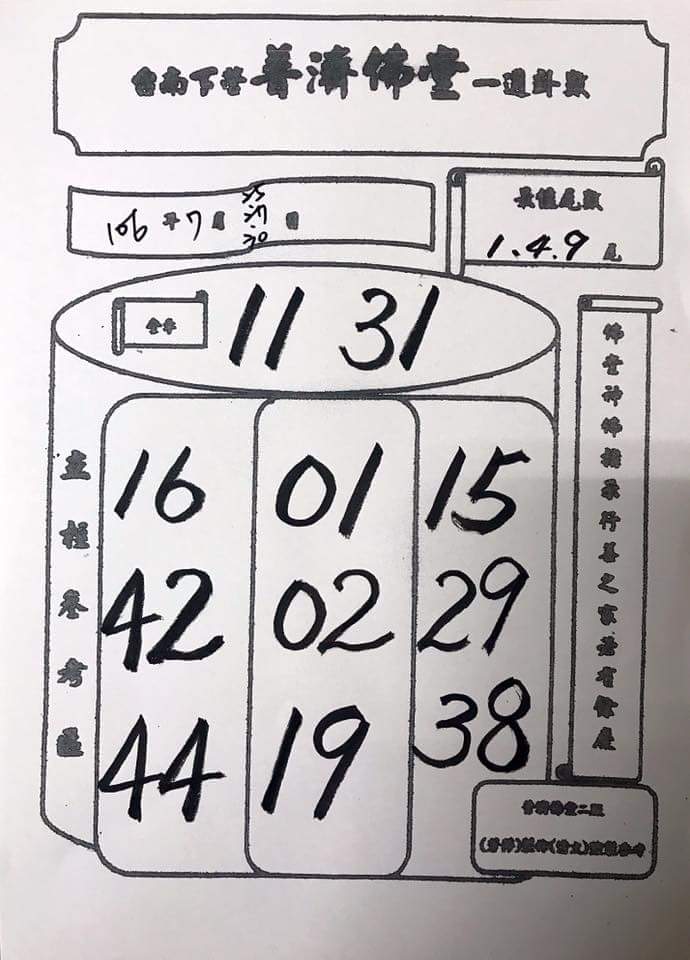 台南下營普濟佛堂一週卦數
106年7月25 27 30日
最佳尾數
1.4.9尾
全車
11 31
主柱參考區
16 01 15
42 02 29
44 19 38
佛堂神佛指示行善之家必有餘慶
普濟佛堂二版